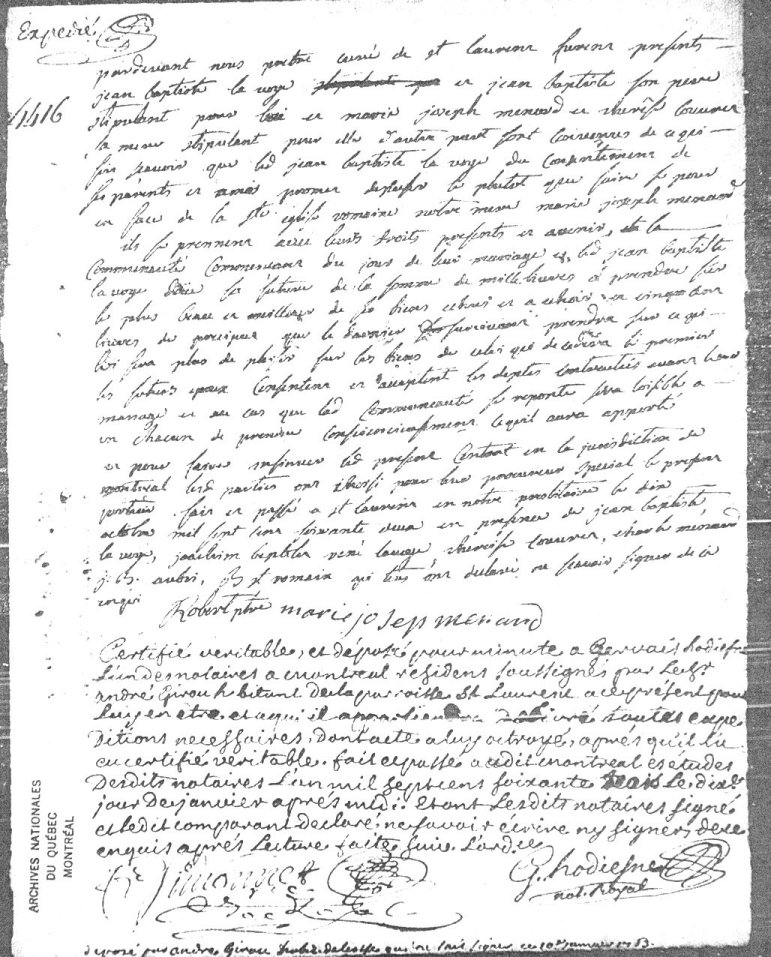 Expedié
1416
pardevant nous prêtre curé de st laurens furent presents
jean baptiste la voye et jean baptiste son pere
stipulant pour lui et marie joseph menard et therèse couvrer
sa mere stipulant pour elle d'autre part sont convenus de ce qui
suit scavoir que led jean baptiste la voye du consentement de
ses parents et amis promet depouser le plutot que faire se pour
en face de la ste eglise romaine notre mere marie joseph menard
ils se prennent avec leurs droits presents et avenir, et la
communauté commencera du jour de leur mariage led jean baptiste
la voye doüe sa future de la somme de mille livres à prendre sur
le plus beau et meilleur de ses biens et cinquante
livres de preciput que le dernier survivant prendra sur ce qui
lui fera plus de plaisir sur les biens de celui qui decedera le premier
les futurs epoux consentent et acceptent les deptes contractées avant leur
mariage et au cas que lad communauté se reporte sera loisible a
un chacun de prendre ce quil aura apporté
et pour faire insinuer led present contrat en la jurisdiction de
montreal lesd parties ont choisi pour leur procureur special le present
porteur fait et passé a st laurens en notre presbitaire le dix
octobre mil sept cent soixante deux en presence de jean baptiste
la voye, joachim rené therèse couvrer, charle menard
j. B. aubri, st romain qui tous ont declaré ne scavoir signer de ce
enquis
Robert ptre marie josep menard
Certifié veritable, et déposé pour minute a Gervais hodiesne
L'un des notaires a montreal residens soussignés par Le Sr
andré Girou habitant de la paroisse St Laurent a ce présent pour
Luy en être, et a qui il apartiendra delivré toutes expe
ditions necessaires, dont acte a luy octroyé, après qu'il l'a
eu certifié veritable. fait et passé audit montreal es études
Desdits notaires L'an mil sept cens soixante trois Le dixe
jour de janvier après midi. Et ont Lesdits notaires signé
et ledit comparant declaré ne savoir écrire ny signer, de ce
enquis après Lecture faite suiv. L'ord.ce
G. hodiesne
not. Royal
deposé par andre Girou qui ne sait signer ce 10e janvier 1763.
ARCHIVES NATIONALES
DU QUÉBEC
MONTRÉAL